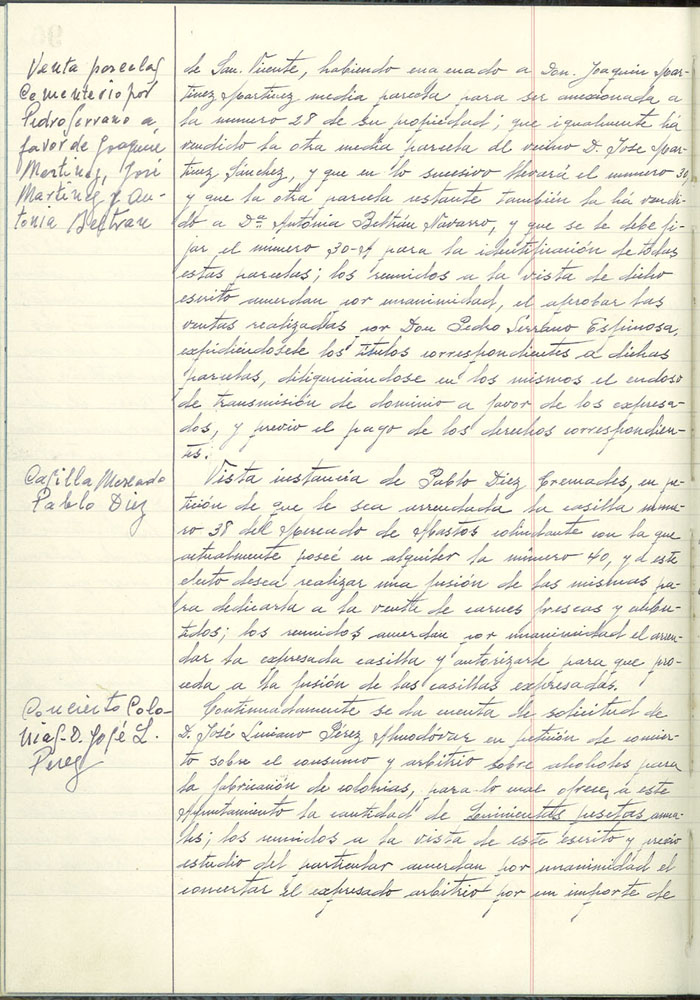 Venta parcelas
Cementerio por
Pedro Serrano a
favor de Joaquín
Martinez, José
Martínez y An-
tonia Beltran
de San Vicente, habiendo enagenado a Don Joaquín Mar-
tínez Martínez media parcela para ser anexionada a
la número 28 de su propiedad; que igualmente há
vendido la otra media parcela al vecino D. José Mar-
tínez Sánchez, y que en lo sucesivo llevará el número 30,
y que la otra parcela restante también la há vendi-
do a Dª Antónia Beltrán Navarro, y que se le debe fi-
jar el número 30-A para la identificación de todas
estas parcelas; los reunidos a la vista de dicho
escrito acuerdan por unanimidad, el aprobar las
ventas realizadas por Don Pedro Serrano Espinosa,
expidiéndosele los títulos correspondientes a dichas
parcelas, diligenciándose en los mismos el endoso
de transmisión de dominio a favor de los expresa-
dos, y previo el pago de los derechos correspondien-
tes.
Casilla Mercado
Pablo Diez
Vista instancia de Pablo Díez Cremades, en pe-
tición de que le sea arrendada la casilla núme-
ro 38 del Mercado de Abastos colindante con la que
actualmente poseé en alquiler la número 40, y a este
efecto desea realizar una fusión de las mismas pa-
ra dedicarla a la venta de carnes frescas y embu-
tidos; los reunidos acuerdan por unanimidad el arren-
dar la expresada casilla y autorizarle para que pro-
ceda a la fusión de las casillas expresadas.
Concierto Colo-
nias-D. José L.
Perez
Continuadamente se da cuenta de solicitud de
D. José Luciano Pérez Almodóvar en petición de concier-
to sobre el consumo y arbitrio sobre alcoholes para
la fabricación de colonias, para lo cual ofrece a este
Ayuntamiento la cantidad de Quinientas pesetas anua-
les; los reunidos a la vista de este escrito y previo
estudio del particular acuerdan por unanimidad el
concertar el expresado arbitrio por un importe de